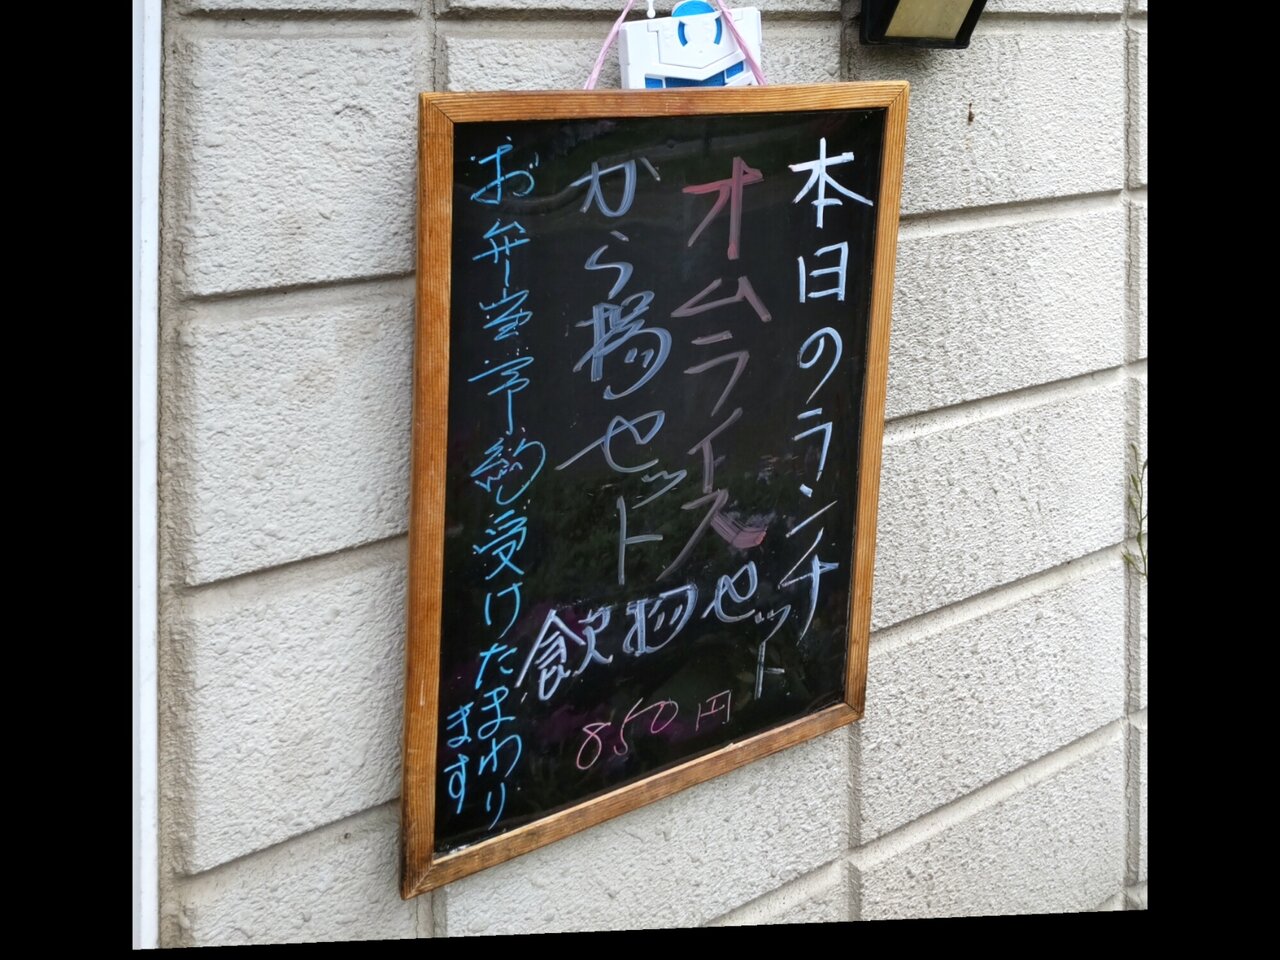 本日のランチ
オムライス
から揚セット
飲物セット
850円
お弁当予約受けたまわり
ます